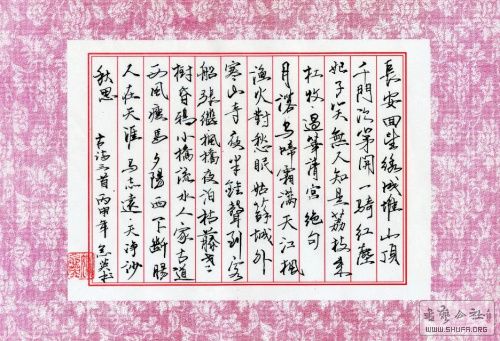 長安回望綉成堆山頂
千門次第開一騎紅塵
妃子笑無人知是荔枝來
杜牧·過華清宮絕句
月落烏啼霜滿天江楓
漁火對愁眠姑蘇城外
寒山寺夜半鐘聲到客
船張繼楓橋夜泊枯藤老
樹昏鴉小橋流水人家古道
西風瘦馬夕陽西下斷腸
人在天涯馬志遠·天淨沙
秋思 古诗三首丙申年
WWW.SHUFA.ORG